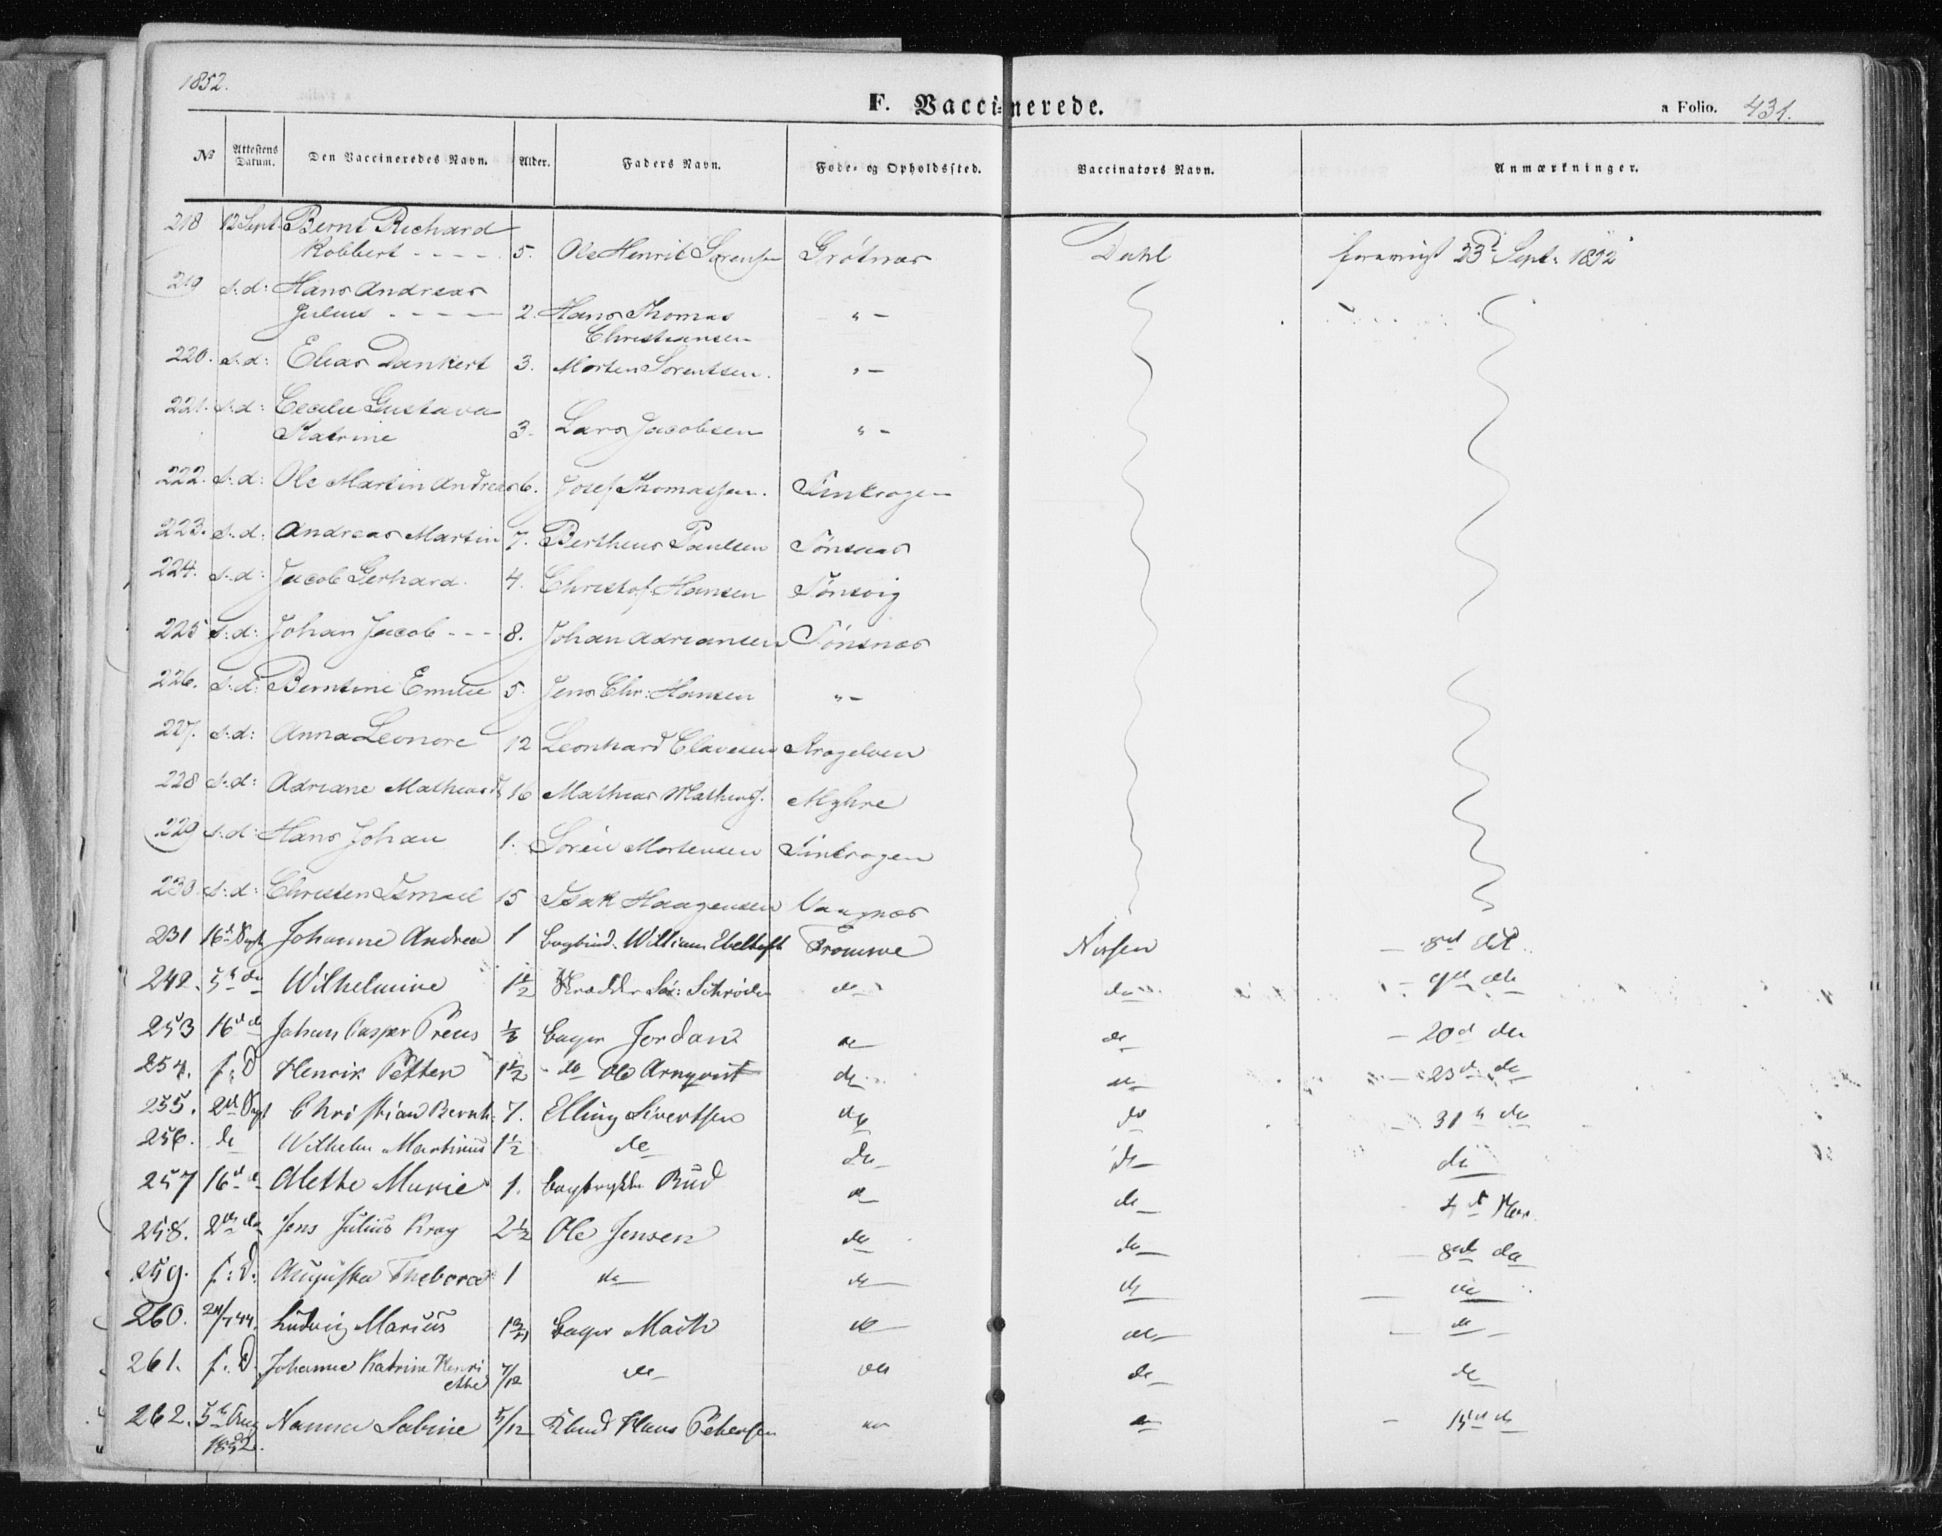 1852.
F. Vaccinerede.
a Folio. 431.
№ Attestens Datum. Den Vaccineredes Navn. Alder. Faders Navn. Føde- og Opholdssted. Vaccinators Navn. Anmærkninger.
218 12 Sept. Bernt Richard
Robbert - - - - 5. Ole Henrik Sørensen Grøtnæs Dahl foreviist 23d Sept. 1852
219 s.d: Hans Andreas
Julius - - - - 2. Hans Thomas " -
Christiansen
220. s.d: Elias Dankert 3. Morten Sorentsen. " -
221. s.d: Cecilie Gustava
Katrine 3. Lars Jacobsen " -
222. s.d: Ole Martin Andreas 6. Josef Thomassen. Finkrogen
223. s.d: Andreas Martin 7. Bertheus Paulsen Tønsnæs
224. s.d: Jacob Gerhard. 4. Christof Hansen Tønsvig
225 s.d: Johan Jacob - - - 8. Johan Adriansen Tønsnæs
226. s.d: Berntine Emilie 5. Jens Chr: Hansen " -
227. s.d: Anna Leonore 12 Leonhard Clavesen Krogelven
228 s.d: Adriane Mathiasd 16 Mathias Mathias. Myhre
229 s.d: Hans Johan 1. Søren Mortensen Finkrogen
230. s:d: Christen Ismael 15 Isak Haagensen Vaagnæs
231 16d Sept Johanne Andrea 1 Bogbind. William Ebeltoft Tromsøe Nissen - 8d Oct.
242. 5te do Wilhelmine 1½ Skrædder Schrøder do do - 9d do
253 16d do Johan Casper Preus Bager Jordan do do - 20d do
254. s:D Henrik Petter 1½ - do Ole Arnqvist do do - 23d do
255. 2d Sept Christian Bernh. 7. Elling Sivertsen do do - 31te do
256. do Wilhelm Martinus 1½ do do do do
257 16d do Alethe Marie 1. Bogtrykker Rud do do
258. 2de do Jens Julius Krog 2½ Ole Jensen do do - 8de do
259. s:D: Augusta Thebora 1 do do do - do
260. Ludvig Marius Bager Mack do do - do
261. s.D. Johanne Katrine Henri
ette 7/12 do do do do
262. 5te Aug Nanna Sabine 5/12 Knud Hans Petersen do do -
1852.